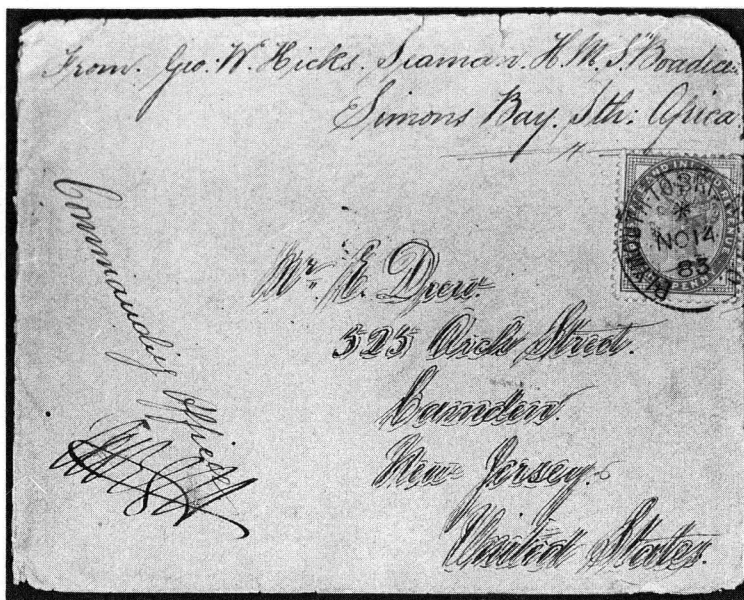 From. Geo: W. Hicks. Seaman. H.M.S. "Boadicea
Simons Bay. Sth: Africa.
Commanding Officer
PLYMOUTH
NO 14
83
Mr. E. Drew.
525 Dick Street.
Camden.
New Jersey.
United States.